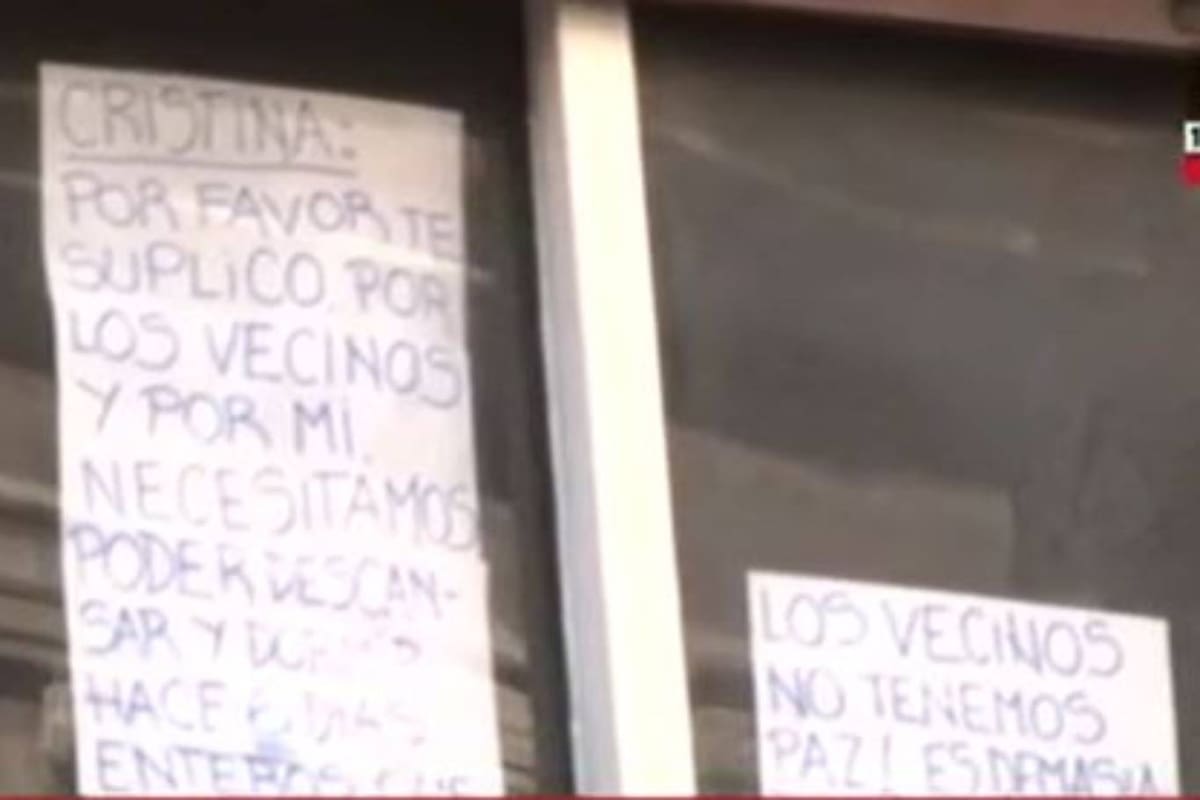 CRISTINA:
POR FAVOR TE
SUPLICO. POR
LOS VECINOS
Y POR MI.
NECESITAMOS
PODER DESCAN-
SAR Y
HACE DIAS
ENTEROS QUE
LOS VECINOS
NO TENEMOS
PAZ! ES
1